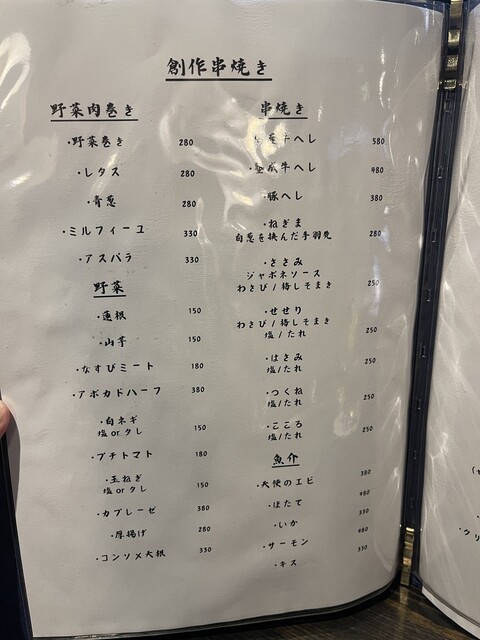 創作串焼き
野菜肉巻き
・野菜巻き 280
・レタス 280
・青葱 280
・ミルフィーユ 330
・アスパラ 330
野菜
・蓮根 150
・山芋 150
・なすびミート 180
・アボカドハーフ 380
・白ネギ
塩 or タレ 150
・プチトマト 180
・玉ねぎ
塩 or タレ 150
・カプレーゼ 380
・厚揚げ 280
・コンソメ大根 330
串焼き
牛ヘレ 580
成牛ヘレ 480
・豚ヘレ 380
・ねぎま
白葱を挟んだ手羽先 280
・ささみ
ジャポネソース
わさび/梅しそまき 250
・せせり
わさび/梅しそまき
塩/たれ 250
・はさみ
塩/たれ 250
・つくね
塩/たれ 250
・こころ
塩/たれ 250
魚介
・天使のエビ 380
・ほたて 480
・いか 330
・サーモン 480
・キス 330